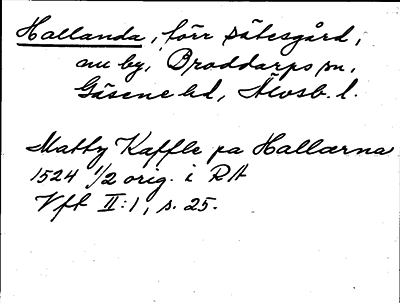 Hallanda, förr sätesgård,
nu by, Broddarps sn,
Gäsene hd, Älvsb. l.
Matty Kaffle pa Hallærna
1524 1/2 orig. i RA
Vft II:1, s. 25.